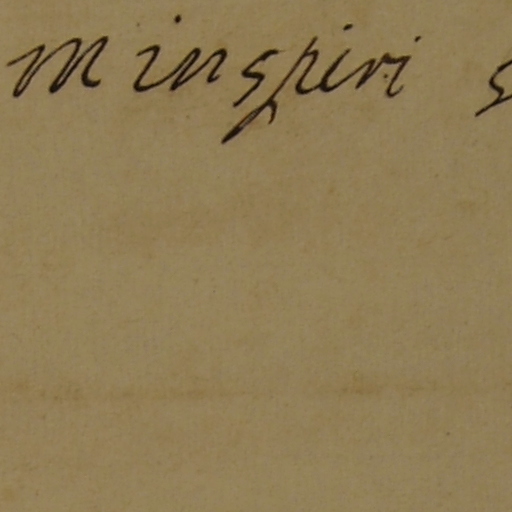 m inspiri s